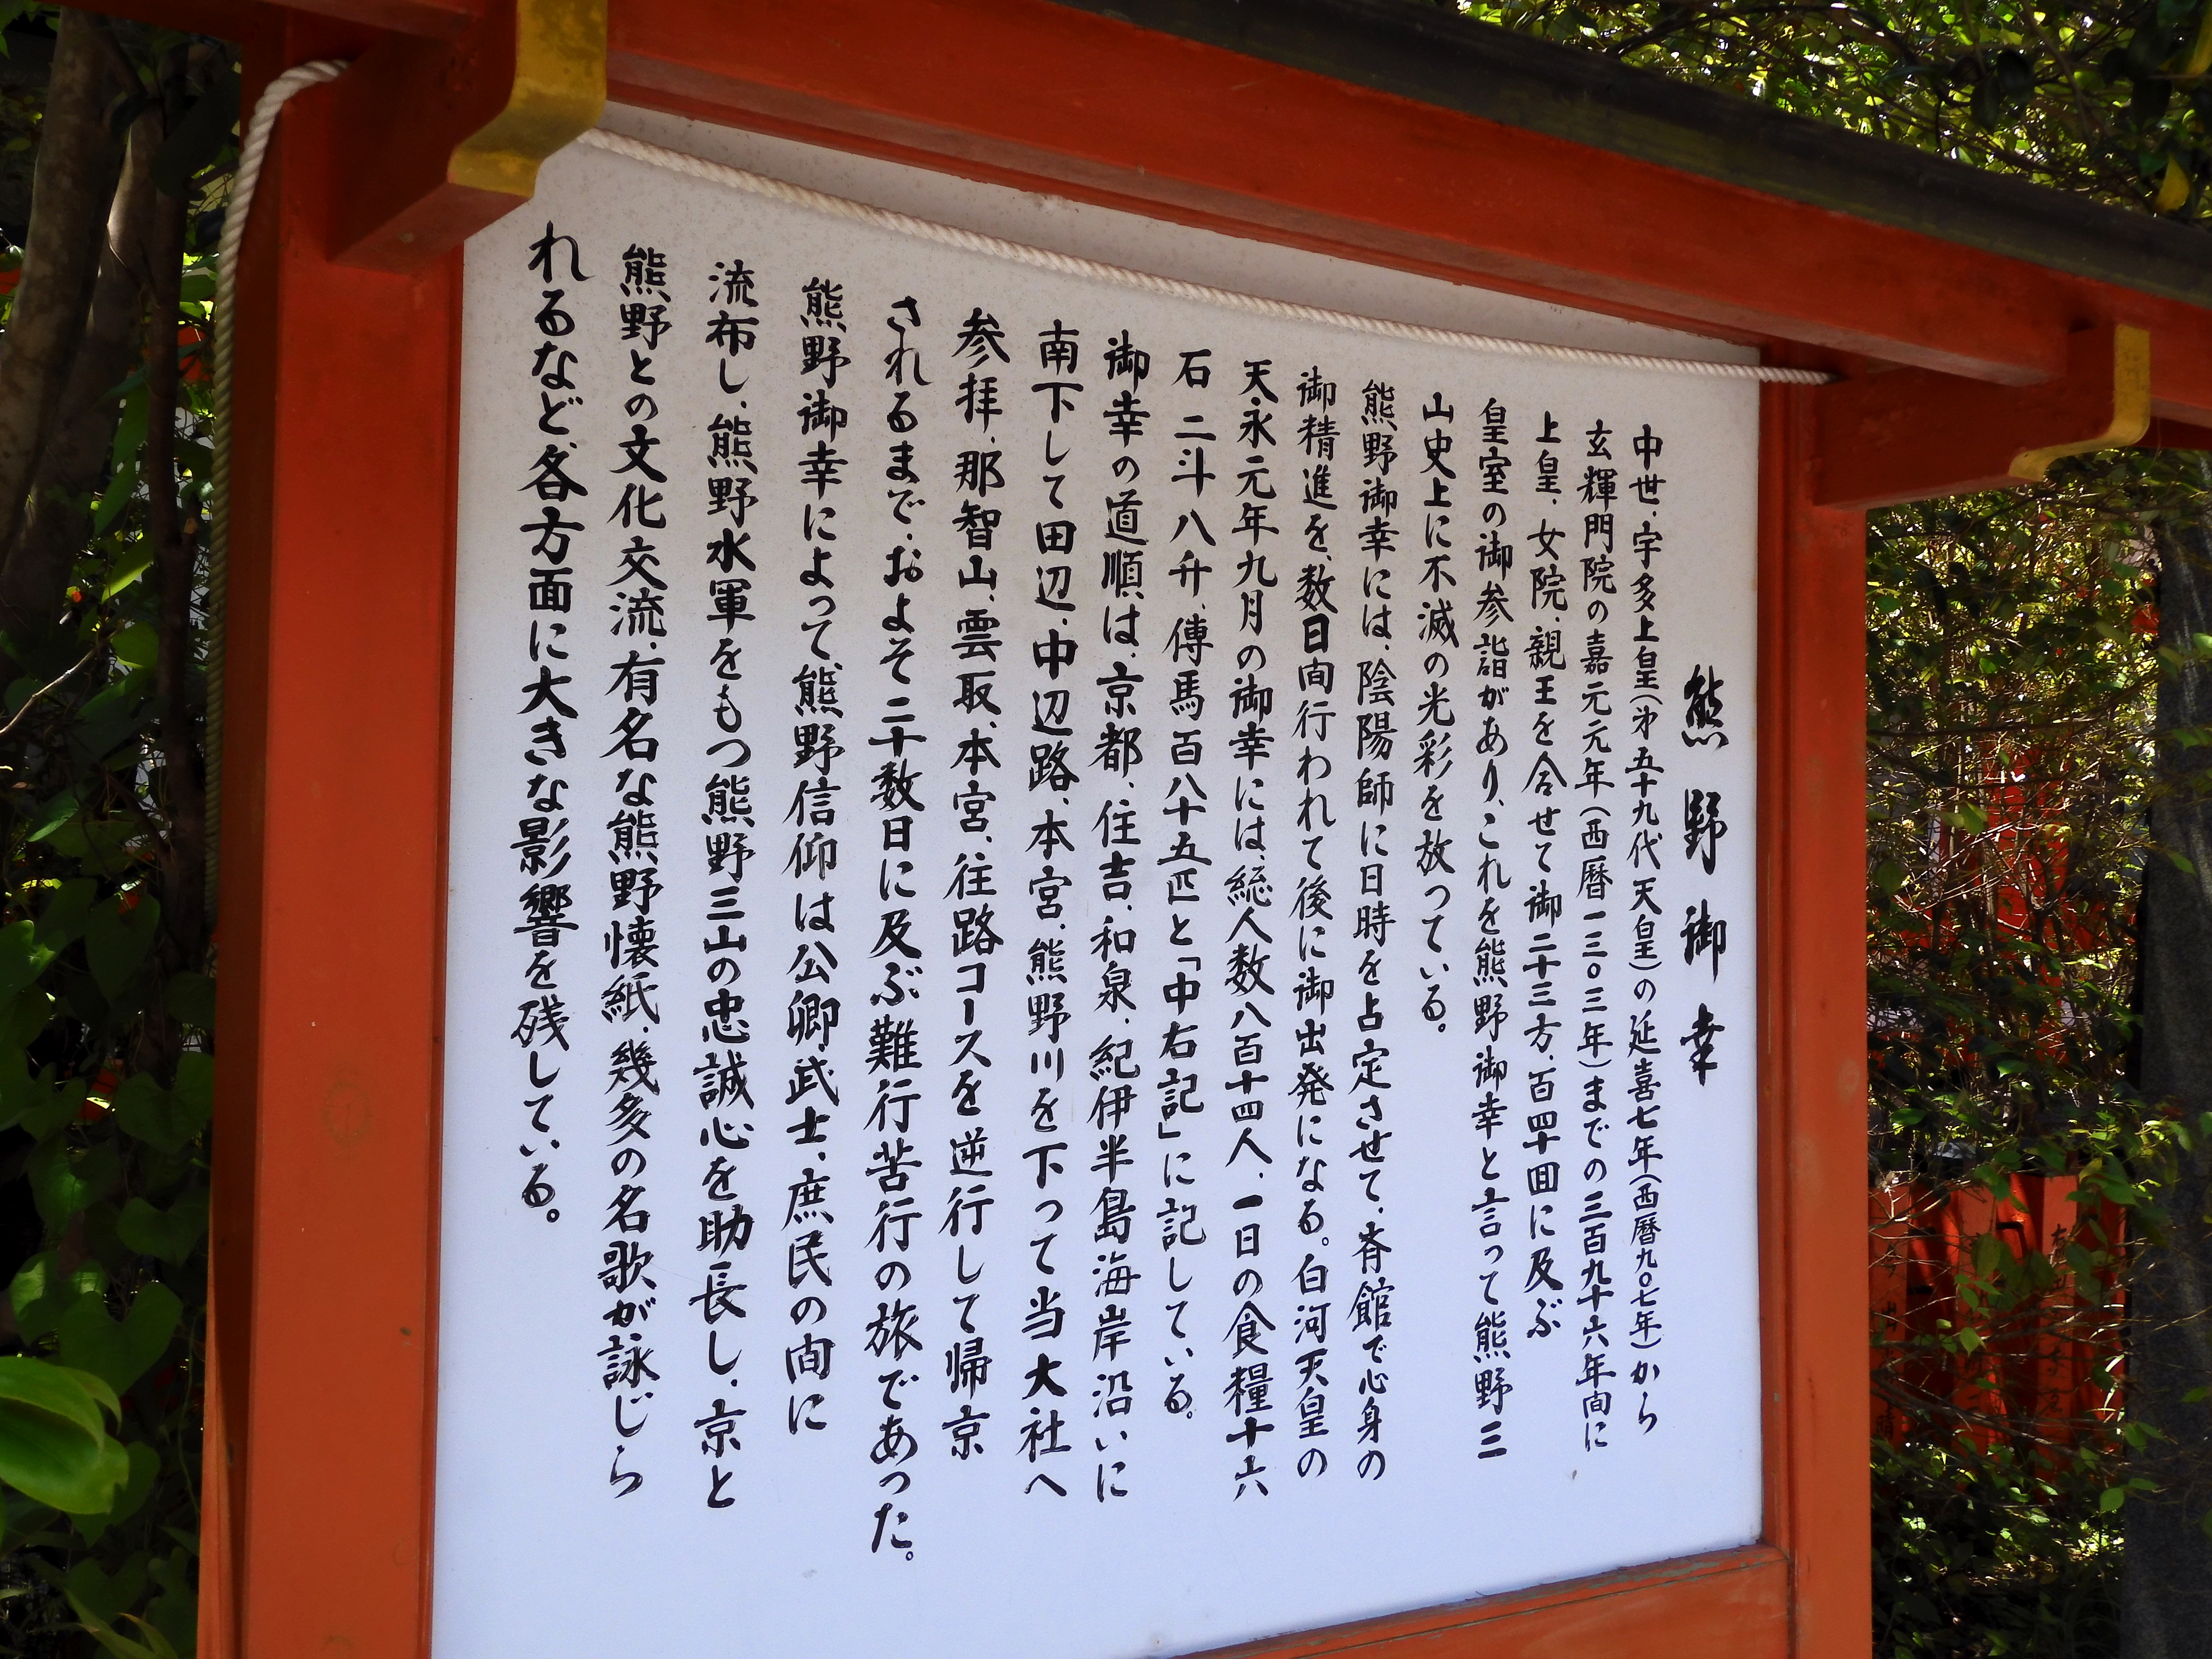 熊野御幸
中世、宇多上皇(第五十九代天皇)の延喜七年(西暦九〇七年)から
玄輝門院の嘉元元年(西暦一三〇三年)までの三百九十六年間に
上皇、女院、親王を合せて御二十三方、百四十回に及ぶ
皇室の御参詣があり、これを熊野御幸と言って熊野三
山史上に不滅の光彩を放っている。
熊野御幸には、陰陽師に日時を占定させて、斉館で心身の
御精進を、数日間行われて後に御出発になる。白河天皇の
天永元年九月の御幸には、総人数八百十四人、一日の食糧十六
石二斗八升、傳馬百八十五匹と「中右記」に記している。
御幸の道順は、京都、住吉、和泉、紀伊半島海岸沿いに
南下して田辺、中辺路、本宮、熊野川を下って当大社へ
参拝、那智山、雲取、本宮、往路コースを逆行して帰京
されるまで、およそ二十数日に及ぶ難行苦行の旅であった。
熊野御幸によって熊野信仰は公卿、武士、庶民の間に
流布し、熊野水軍をもつ熊野三山の忠誠心を助長し、京と
熊野との文化交流、有名な熊野懐紙、幾多の名歌が詠じら
れるなど各方面に大きな影響を残している。